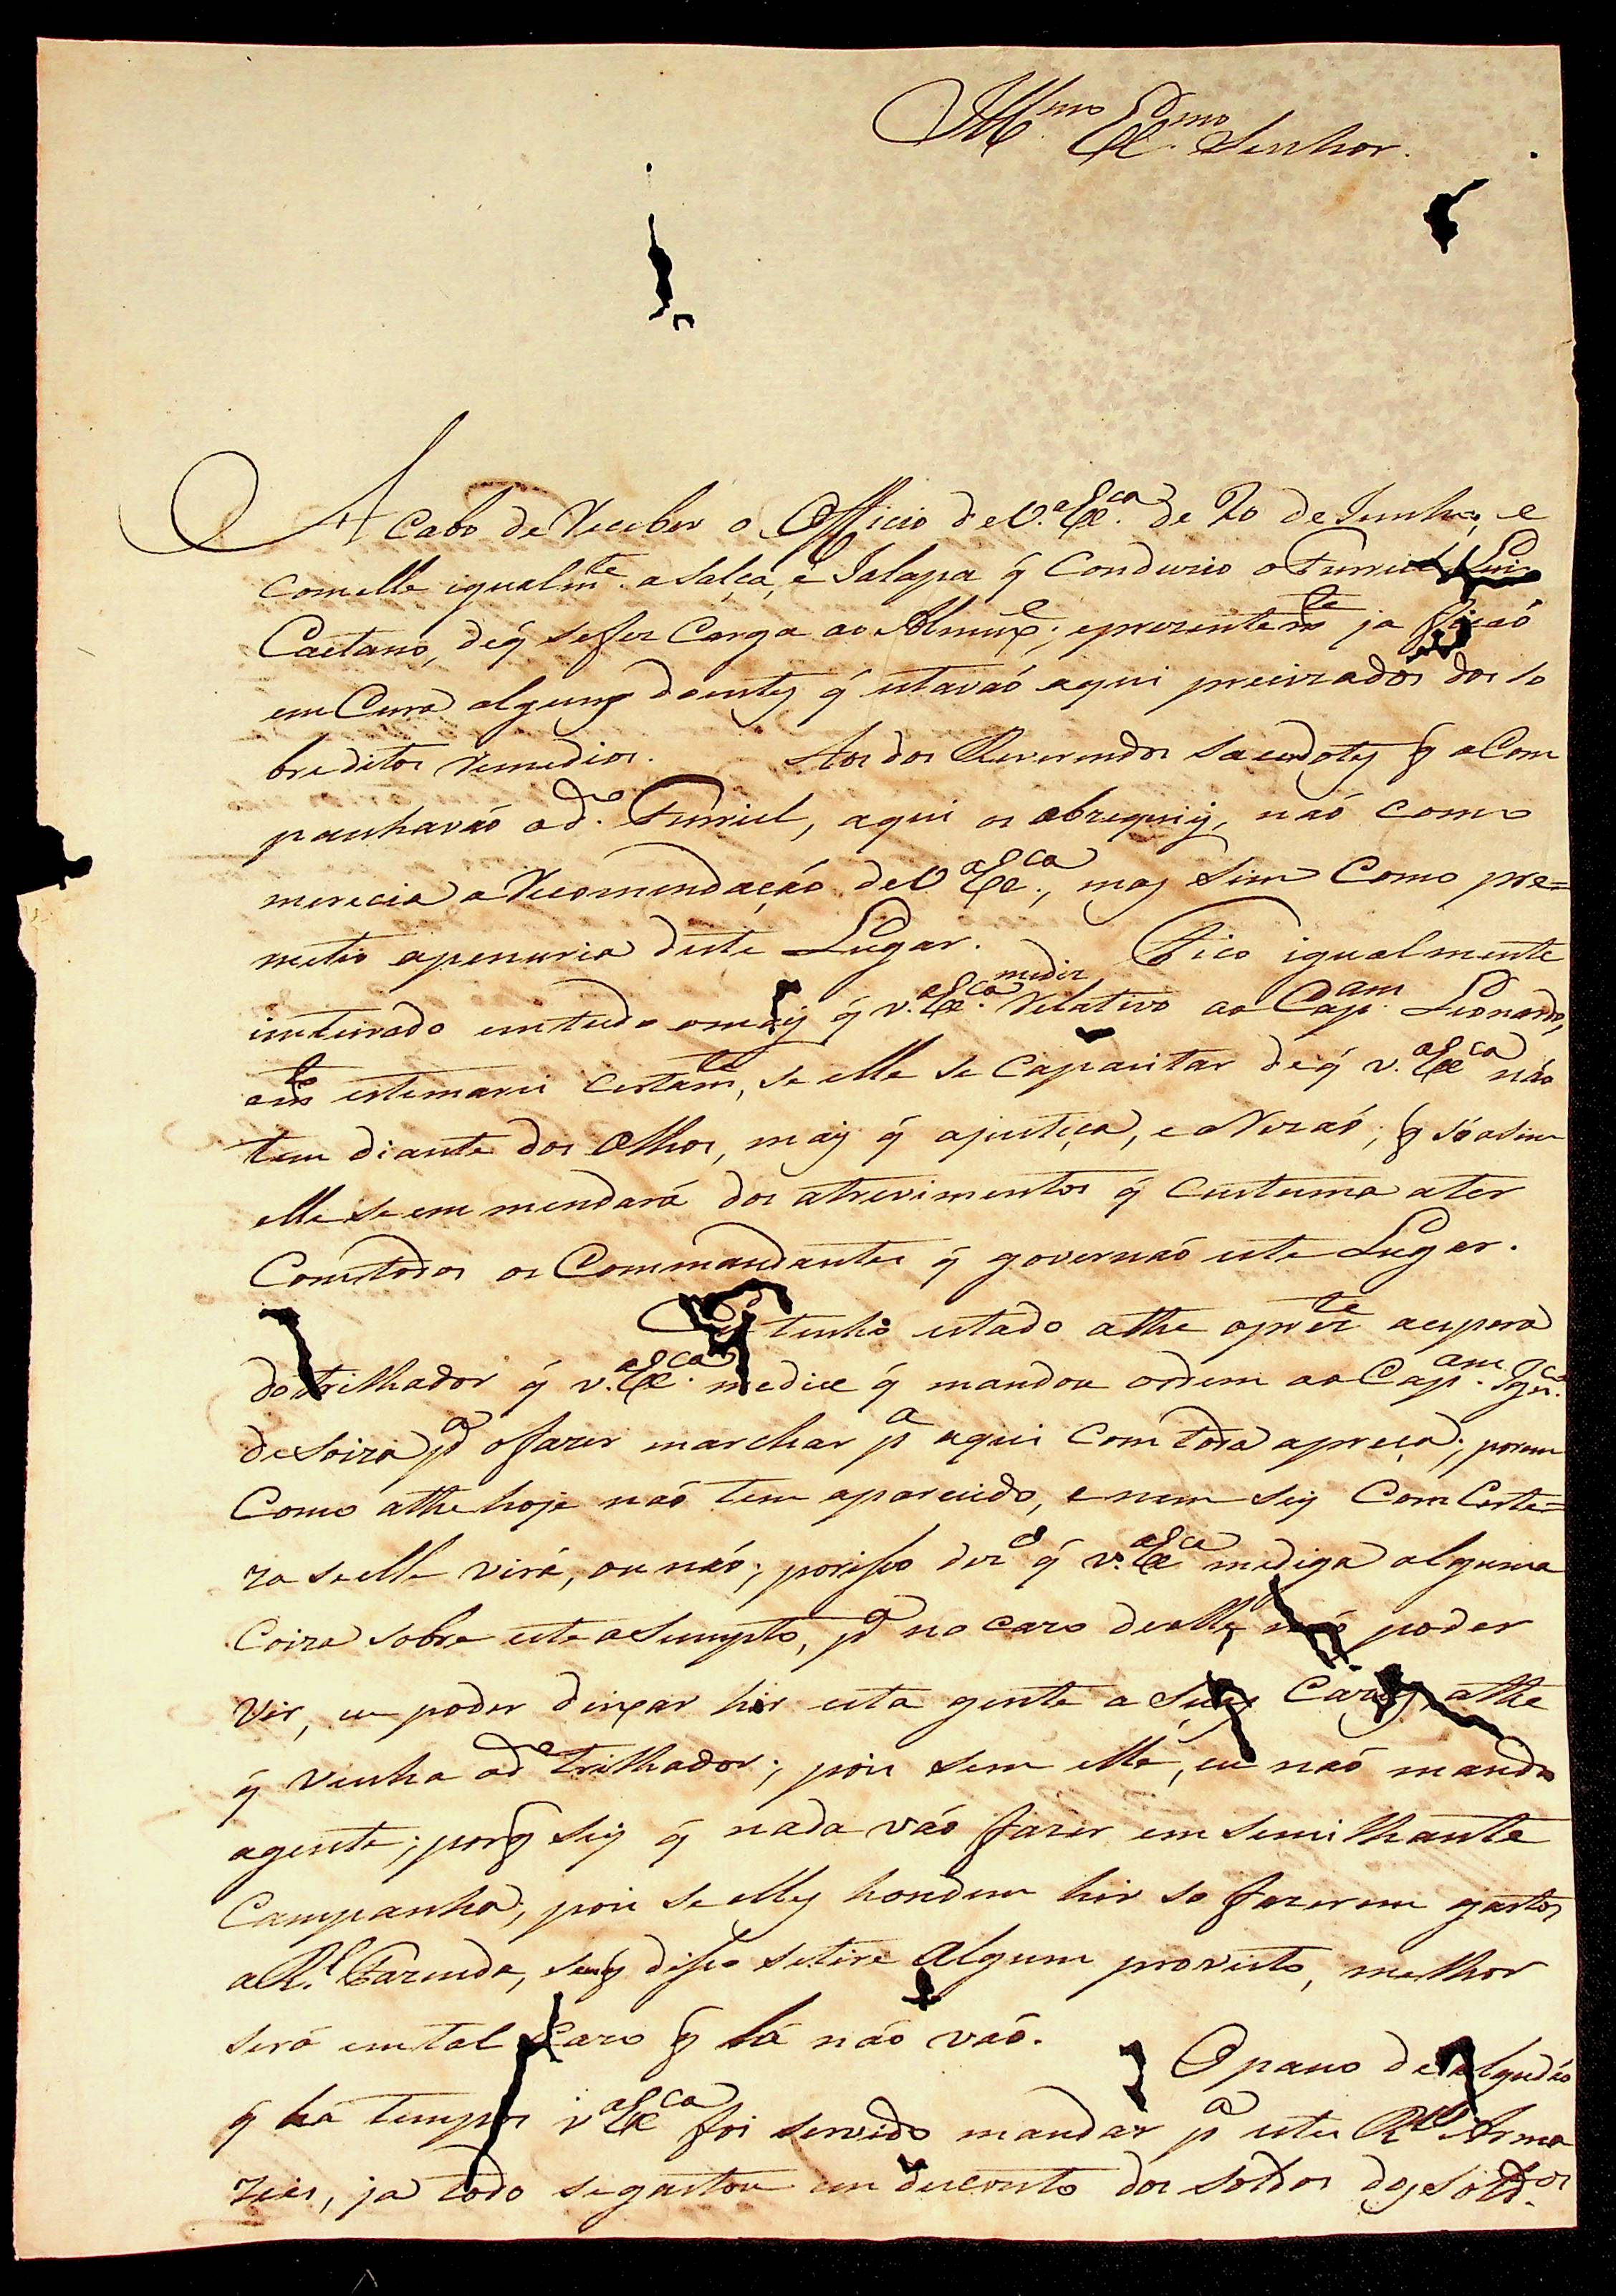 Ill.mo Ex.mo Senhor.
Acabo de Receber o Officio de V.a Ex.ca de 20 de Junho, e
com elle igualm.te a salça, e Jalapa q̃ Conduzio o Furriel Luis
Caetano, de q̃ se fez Carga ao Almux.e; e prezentem.te ja ficaõ
em Cura alguns doentes q̃ estavaõ aqui precizados dos so
breditos remedios. Aos dos Reverendos Sacerdotes q̃ aCom
panhavaõ o d.o Furriel, aqui os obzequiei, naõ como
merecia a Recomendaçaõ de V.a Ex.ca, mas sim Como pre=
metio apenuria deste Lugar. Fico igualmente
inteirado em tudo o mais q̃ V.a Ex.ca me diz Relativo ao Cap.am Leonardo,
e m.to estemarei certam.te, se elle se Capacitar de q̃ V.a Ex.ca naõ
tem diante dos Olhos, mais q̃ ajustiça, e a Rezaõ; q̃ só asim
elle se emmendará dos atrevimentos q̃ custuma ater
Com todos os Commandantes q̃ governaõ este Lugar.
Eu tenho estado athe oprez.te aespera
do trilhador q̃ V.a Ex.ca me dice q̃ mandou ordem ao Cap.am Ign.co
de Soiza p.a ofazer marchar p.a aqui Com toda apreça; porem
Como athe hoje naõ tem aparecido, e nem sei Com Certe=
za se elle virá, ou naõ; porisso dez.o q̃ V.a Ex.ca me diga alguma
Coiza sobre este asumpto, p.a no cazo de elle naõ poder
vir, eu poder deixar hir esta gente a suas Cazas, athe
q̃ venha o d.o trilhador; pois sem elle, eu naõ mando
agente; porq̃ sei q̃ nada vaõ fazer em semilhante
Campanha, pois se elles houdem hir so fazerem gastos
a R.l Fazenda, sem q̃ disso se tire algum proveito, melhor
será em tal Cazo q̃ lá naõ vaõ. O pano de algudaõ
q̃ ha tempos V.a Ex.ca foi servido mandar p.a estes R.es Arma
zeis, ja todo se gastou em desconto dos soldos dos sold.os